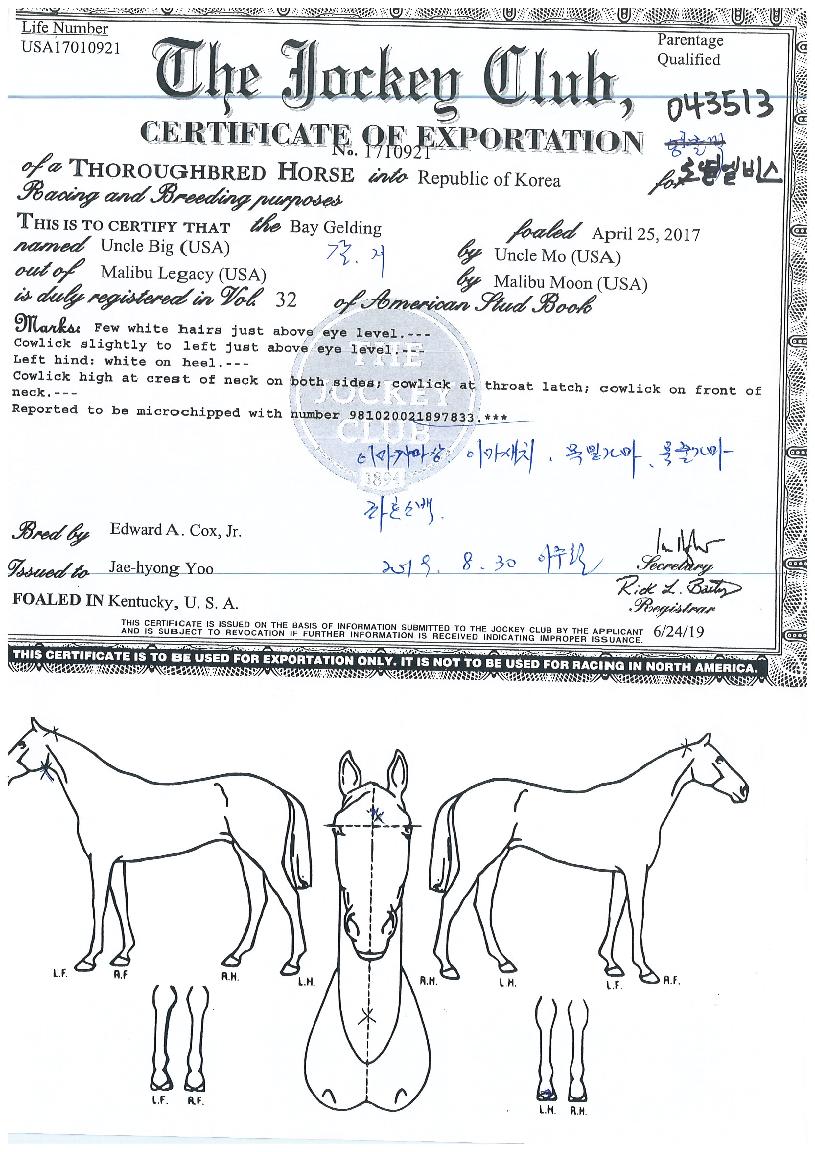 Life Number
USA17010921
Parentage
Qualified
The Jockey Club,
043513
CERTIFICATE OF EXPORTATION
No. 1710921
of a THOROUGHBRED HORSE into Republic of Korea
for 로열엘비스
Racing and Breeding purposes
THIS IS TO CERTIFY THAT the Bay Gelding foaled April 25, 2017
named Uncle Big (USA) by Uncle Mo (USA)
out of Malibu Legacy (USA) by Malibu Moon (USA)
is duly registered in Vol. 32 of American Stud Book
Marks: Few white hairs just above eye level.---
Cowlick slightly to left just above eye level.---
Left hind: white on heel.---
Cowlick high at crest of neck on both sides; cowlick at throat latch; cowlick on front of
neck.---
Reported to be microchipped with number 981020021897833.***
THE
JOCKEY
CLUB
1894
Bred by Edward A. Cox, Jr.
Issued to Jae-hyong Yoo
2019. 8. 30
Secretary
Rick L. Bailey
Registrar
FOALED IN Kentucky, U. S. A.
THIS CERTIFICATE IS ISSUED ON THE BASIS OF INFORMATION SUBMITTED TO THE JOCKEY CLUB BY THE APPLICANT
AND IS SUBJECT TO REVOCATION IF FURTHER INFORMATION IS RECEIVED INDICATING IMPROPER ISSUANCE.
6/24/19
THIS CERTIFICATE IS TO BE USED FOR EXPORTATION ONLY. IT IS NOT TO BE USED FOR RACING IN NORTH AMERICA.
L.F. R.F R.H. L.H. R.H. L.H. L.F. R.F.
L.F. R.F. L.H. R.H.